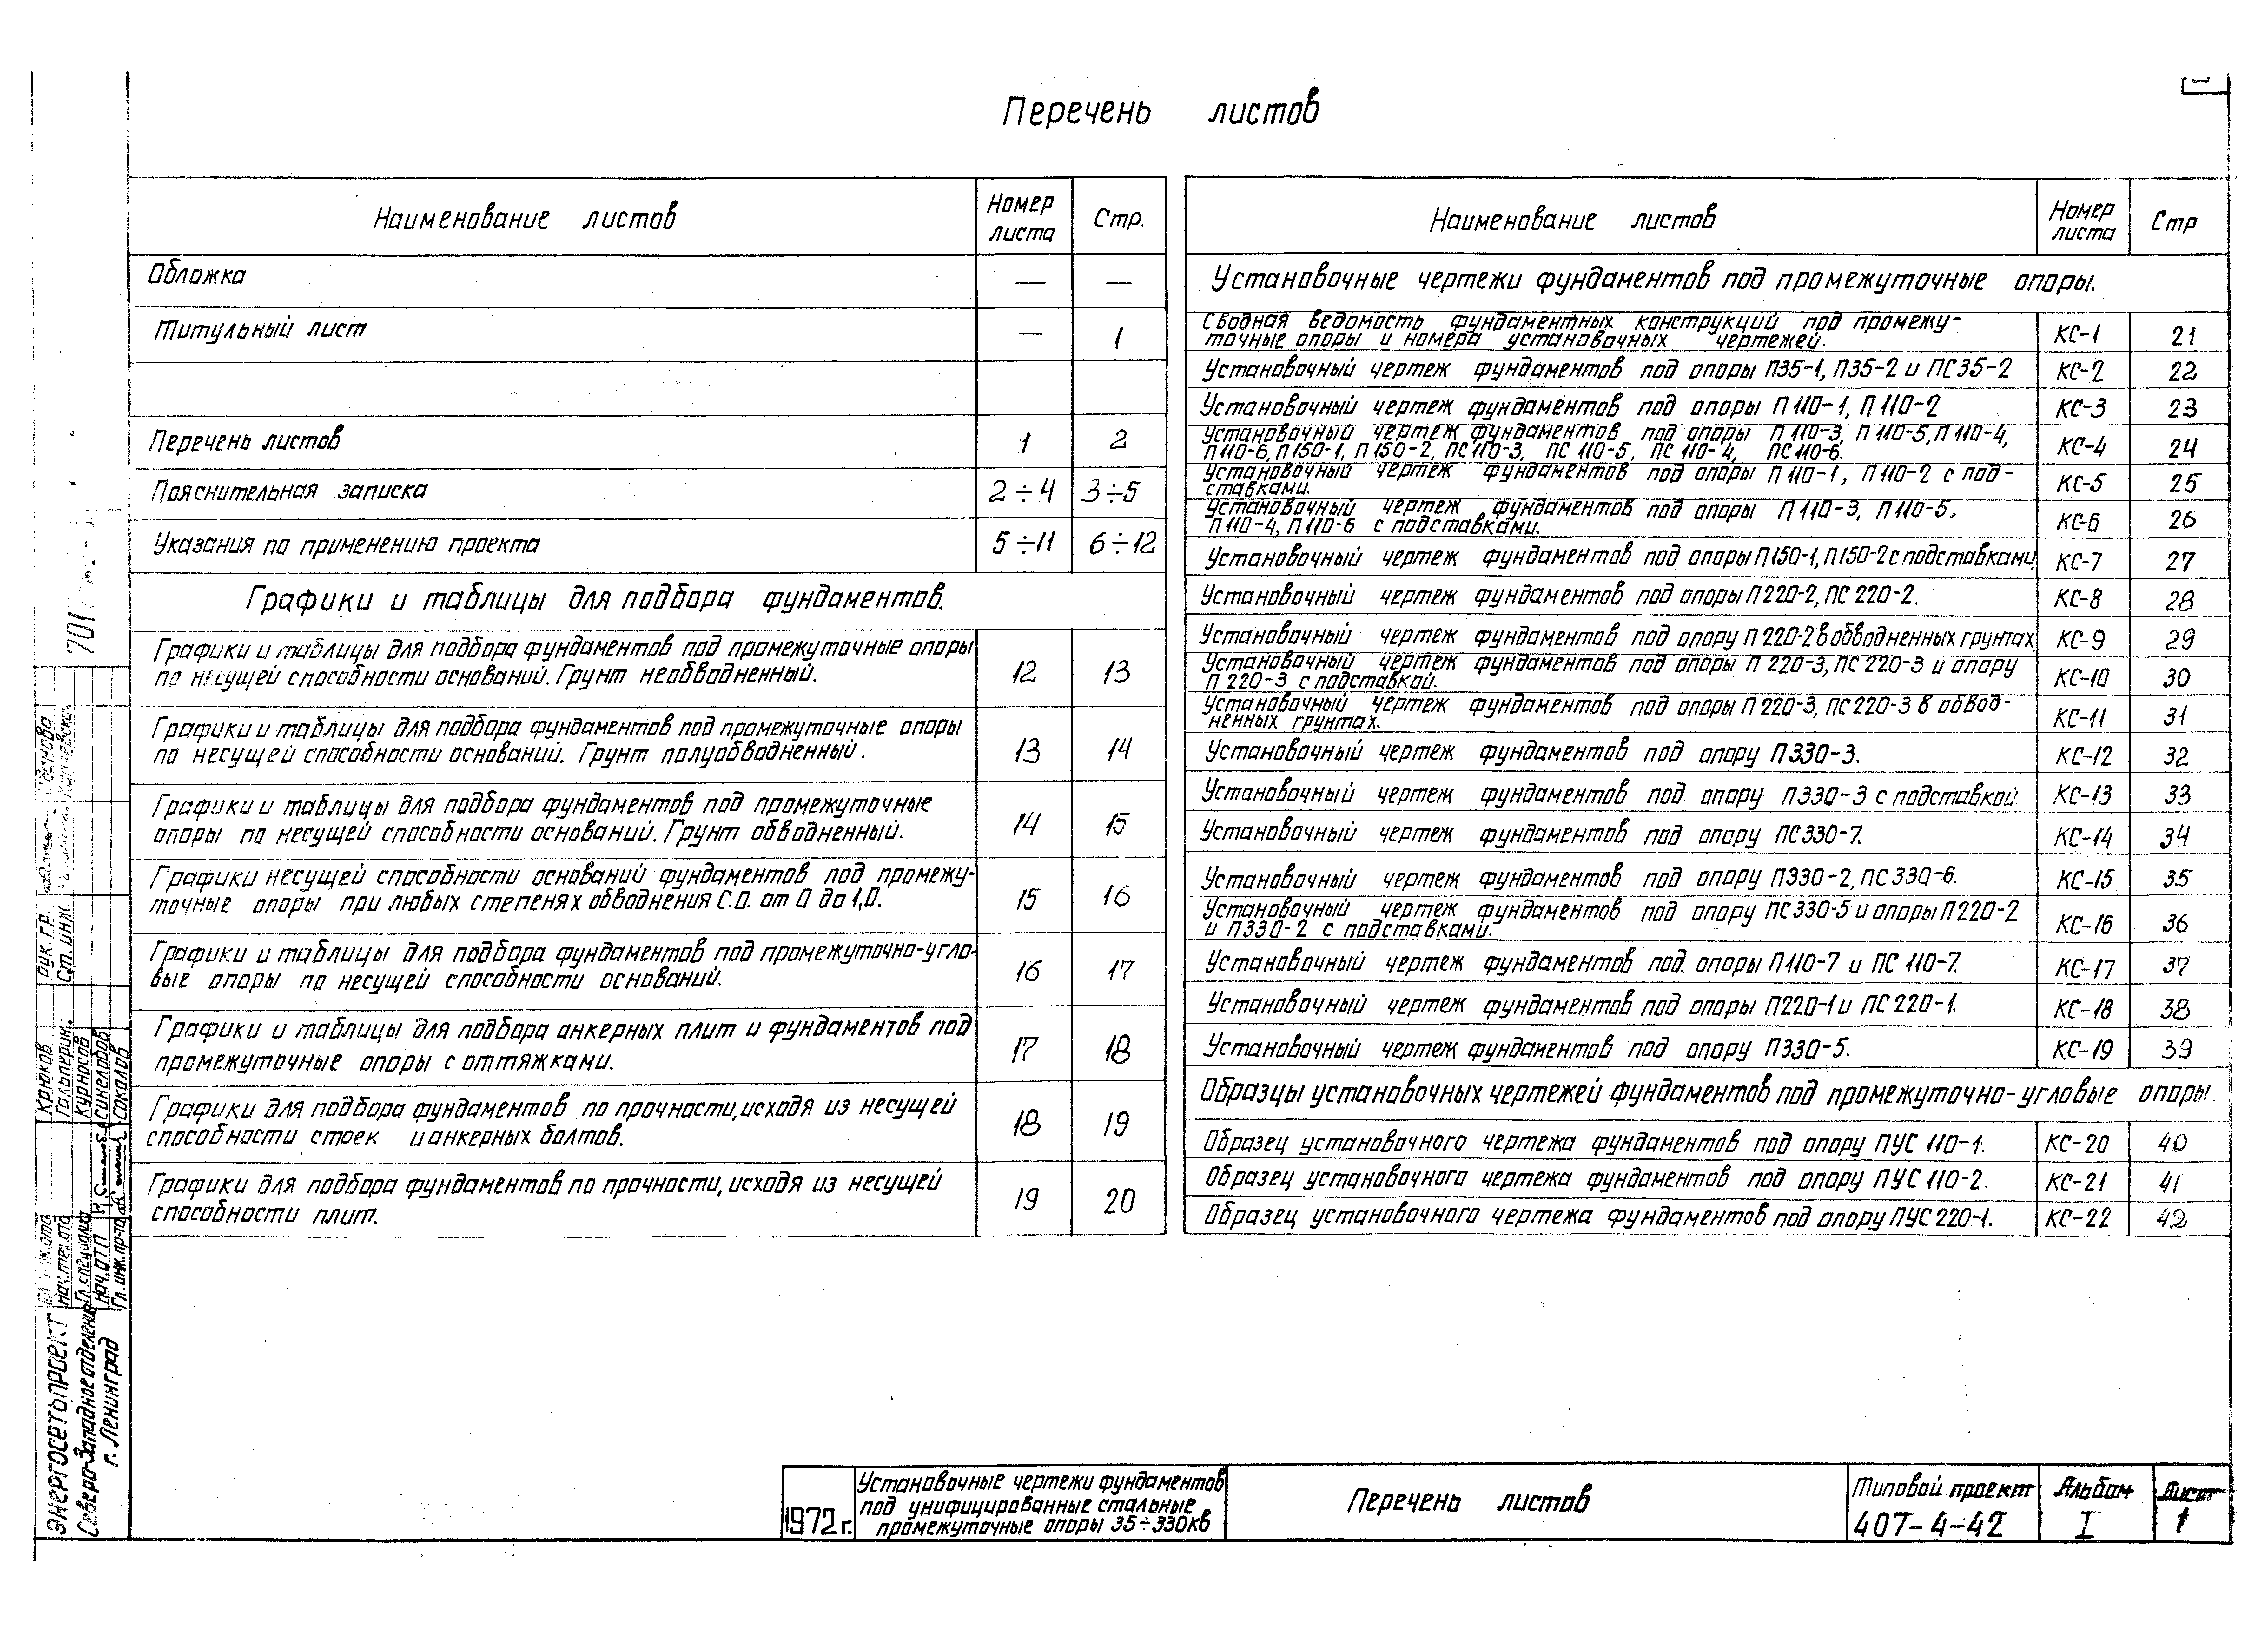 Перечень листов
Наименование листов
Номер листа
Стр.
Обложка — —
Титульный лист — 1
Перечень листов 1 2
Пояснительная записка 2÷4 3÷5
Указания по применению проекта 5÷11 6÷12
Графики и таблицы для подбора фундаментов.
Графики и таблицы для подбора фундаментов под промежуточные опоры
по несущей способности оснований. Грунт необводненный. 12 13
Графики и таблицы для подбора фундаментов под промежуточные опоры
по несущей способности оснований. Грунт полуобводненный. 13 14
Графики и таблицы для подбора фундаментов под промежуточные
опоры по несущей способности оснований. Грунт обводненный. 14 15
Графики несущей способности оснований фундаментов под промежу-
точные опоры при любых степенях обводнения С.О. от 0 до 1,0. 15 16
Графики и таблицы для подбора фундаментов под промежуточно-угло-
вые опоры по несущей способности оснований. 16 17
Графики и таблицы для подбора анкерных плит и фундаментов под
промежуточные опоры с оттяжками. 17 18
Графики для подбора фундаментов по прочности, исходя из несущей
способности стоек и анкерных болтов. 18 19
Графики для подбора фундаментов по прочности, исходя из несущей
способности плит. 19 20
Наименование листов
Номер листа
Стр.
Установочные чертежи фундаментов под промежуточные опоры.
Сводная ведомость фундаментных конструкций под промежу-
точные опоры и номера установочных чертежей. КС-1 21
Установочный чертеж фундаментов под опоры П35-1, П35-2 и ПС35-2 КС-2 22
Установочный чертеж фундаментов под опоры П110-1, П110-2 КС-3 23
Установочный чертеж фундаментов под опоры П110-3, П110-5, П110-4,
П110-6, П150-1, П150-2, ПС110-3, ПС110-5, ПС110-4, ПС110-6. КС-4 24
Установочный чертеж фундаментов под опоры П110-1, П110-2 с под-
ставками. КС-5 25
Установочный чертеж фундаментов под опоры П110-3, П110-5,
П110-4, П110-6 с подставками. КС-6 26
Установочный чертеж фундаментов под опоры П150-1, П150-2 с подставками КС-7 27
Установочный чертеж фундаментов под опоры П220-2, ПС220-2. КС-8 28
Установочный чертеж фундаментов под опору П220-2 в обводненных грунтах КС-9 29
Установочный чертеж фундаментов под опоры П220-3, ПС220-3 и опору
П220-3 с подставкой. КС-10 30
Установочный чертеж фундаментов под опоры П220-3, ПС220-3 в обвод-
ненных грунтах. КС-11 31
Установочный чертеж фундаментов под опору П330-3. КС-12 32
Установочный чертеж фундаментов под опору П330-3 с подставкой. КС-13 33
Установочный чертеж фундаментов под опору ПС330-7. КС-14 34
Установочный чертеж фундаментов под опору П330-2, ПС330-6. КС-15 35
Установочный чертеж фундаментов под опору ПС330-5 и опоры П220-2
и П330-2 с подставками. КС-16 36
Установочный чертеж фундаментов под опоры П110-7 и ПС110-7. КС-17 37
Установочный чертеж фундаментов под опоры П220-1 и ПС220-1. КС-18 38
Установочный чертеж фундаментов под опору П330-5. КС-19 39
Образцы установочных чертежей фундаментов под промежуточно-угловые опоры.
Образец установочного чертежа фундаментов под опору ПУС110-1. КС-20 40
Образец установочного чертежа фундаментов под опору ПУС110-2. КС-21 41
Образец установочного чертежа фундаментов под опору ПУС220-1. КС-22 42
701
Рук. гр.
Ст. инж.
Крюков
Гальперин
Курносов
Синелобов
Соколов
Нач. тех. отд
Гл. специалист
Нач. ОТП
Гл. инж. пр-та
ЭНЕРГОСЕТЬПРОЕКТ
Северо-Западное отделение
г. Ленинград
1972 г.
Установочные чертежи фундаментов
под унифицированные стальные
промежуточные опоры 35÷330кв
Перечень листов
Типовой проект
407-4-42
Альбом
I
Лист
1